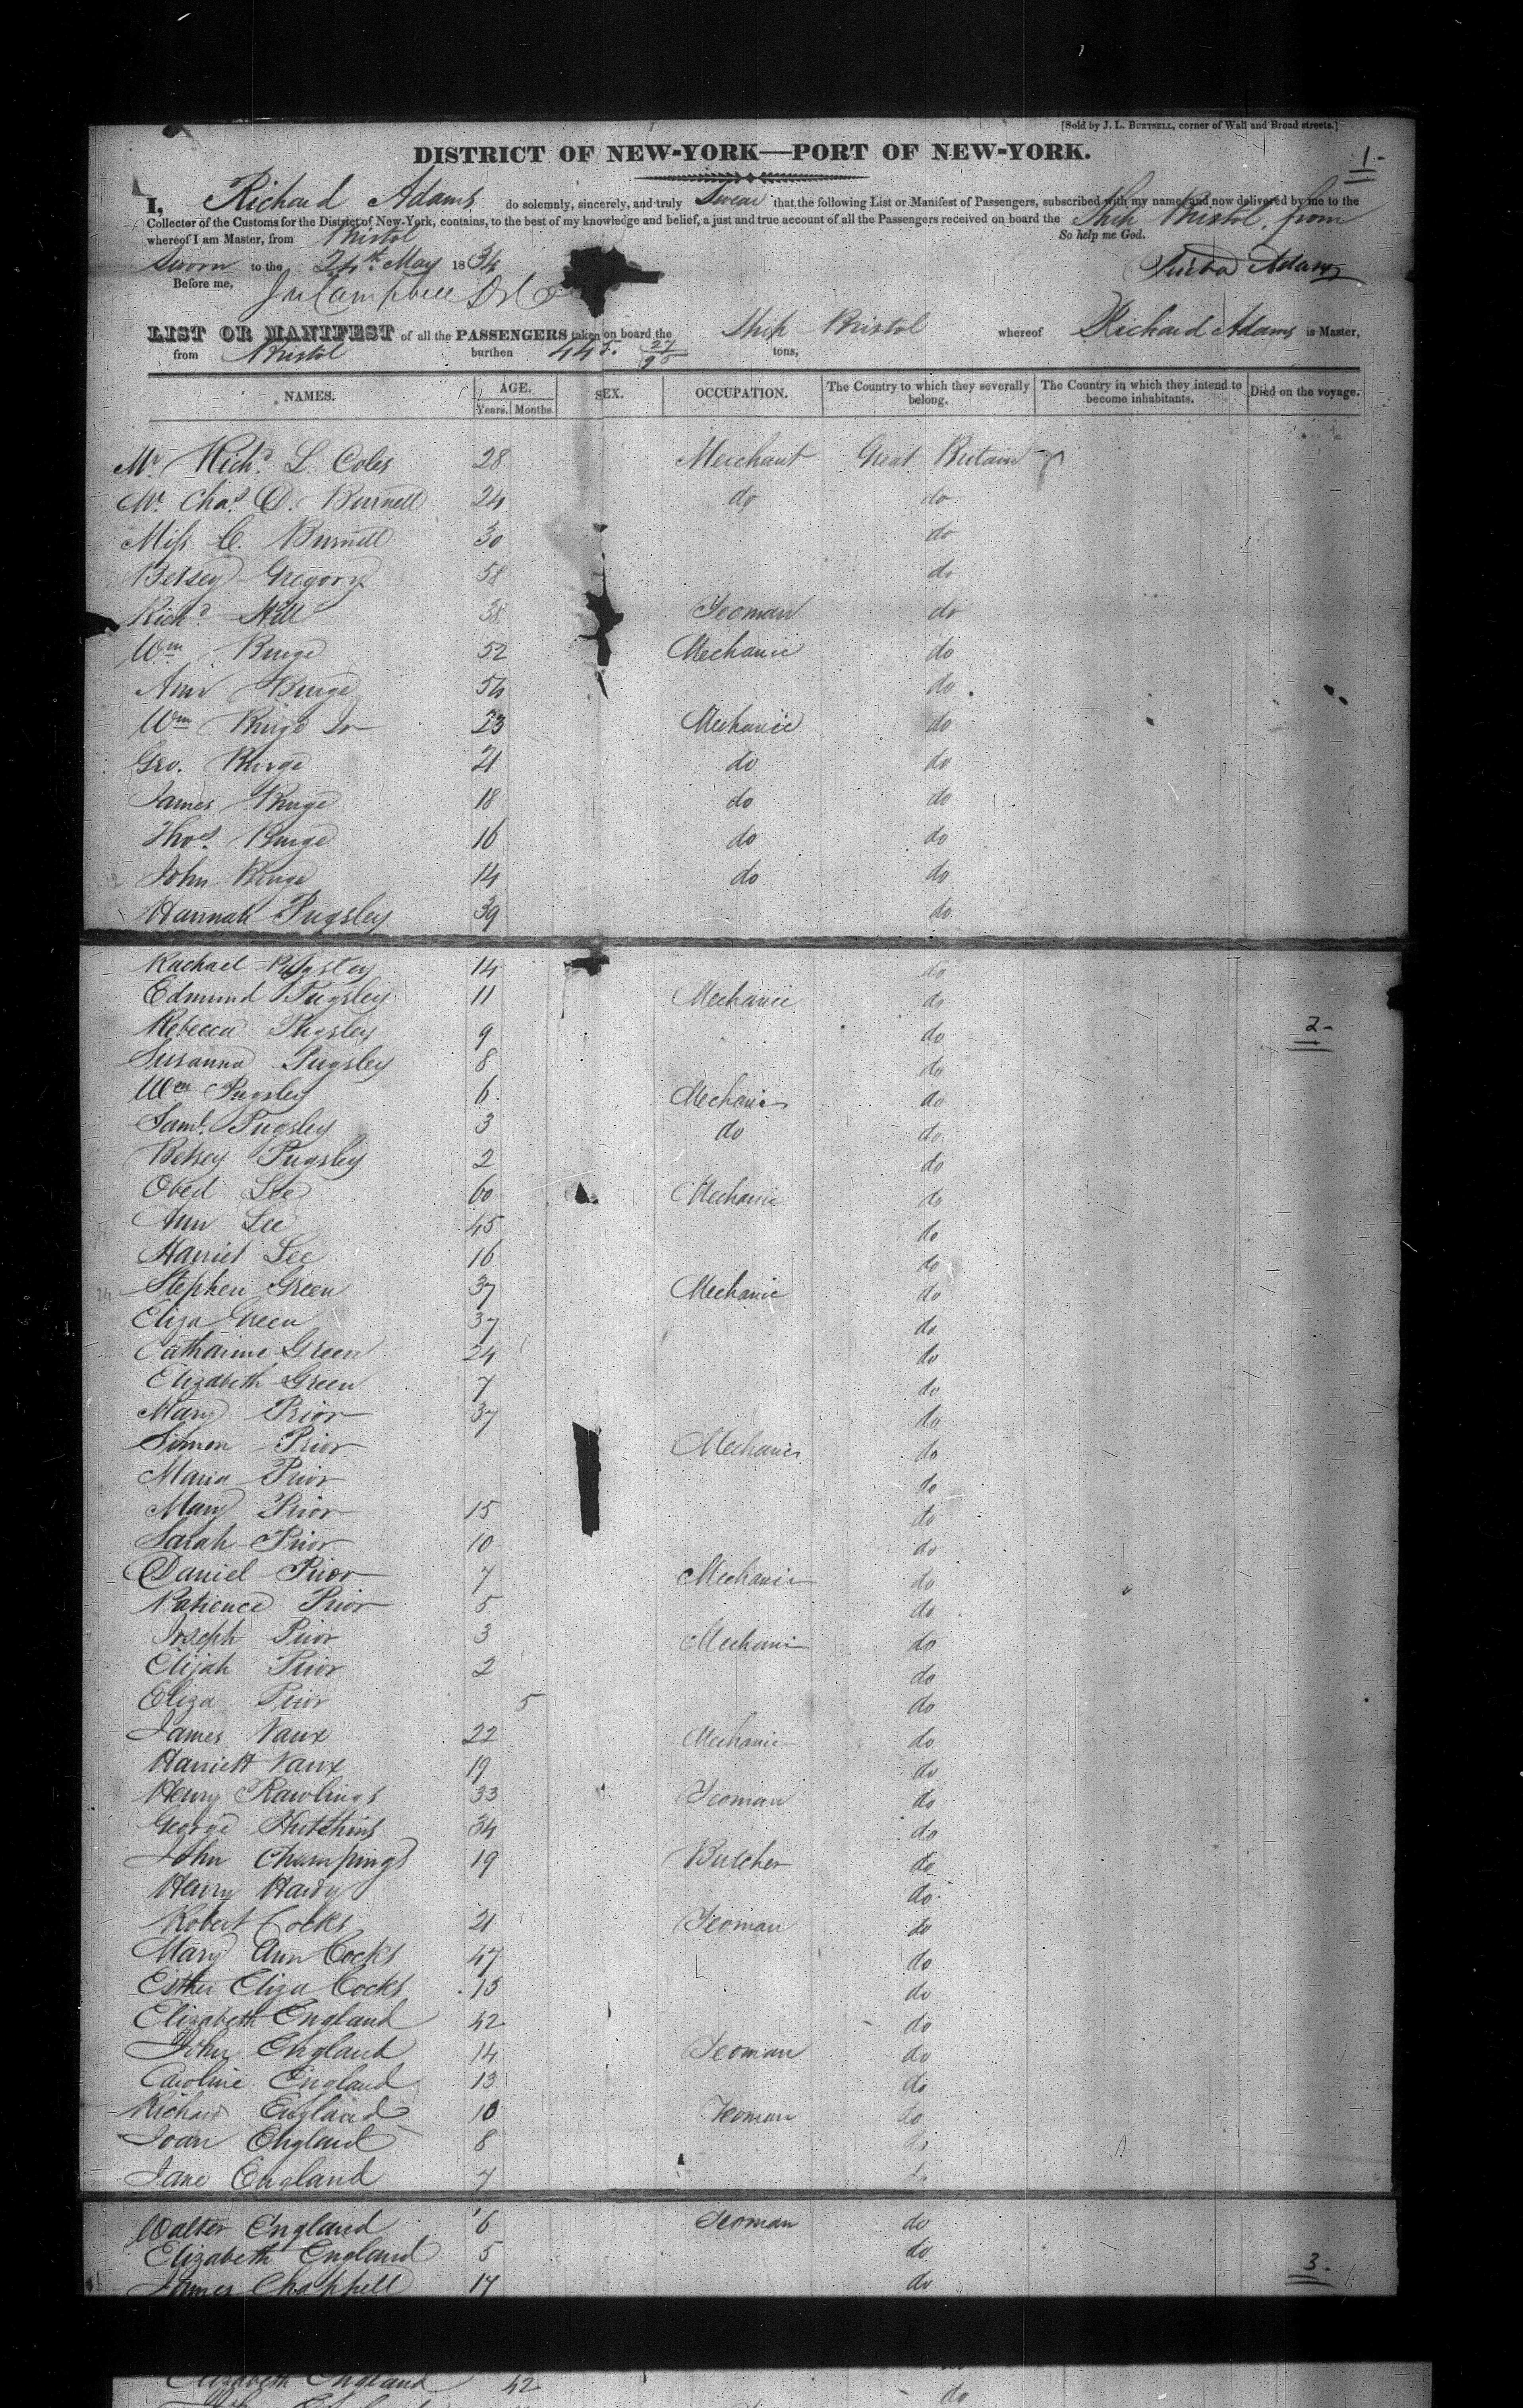 [Sold by J. L. BURTSELL, corner of Wall and Broad streets.]
DISTRICT OF NEW-YORK—PORT OF NEW-YORK.
1-
I, Richard Adams do solemnly, sincerely, and truly Swear that the following List or Manifest of Passengers, subscribed with my name, and now delivered by me to the
Collector of the Customs for the District of New-York, contains, to the best of my knowledge and belief, a just and true account of all the Passengers received on board the Ship Bristol, from
whereof I am Master, from Bristol So help me God.
Sworn to the 24th May 1834 Adams
Before me, Campbell
LIST OR MANIFEST of all the PASSENGERS taken on board the Ship Bristol whereof Richard Adams is Master,
from Bristol burthen tons,
NAMES. AGE. Years. Months. SEX. OCCUPATION. The Country to which they severally belong. The Country in which they intend to become inhabitants. Died on the voyage.
Mr. Richd. L. Coles 28 Merchant Great Britain
Mr. Chas. D. Burnell 24 do do
Miss C. Burnell 30 do
Betsey Gregory 58 do
Richd. Hill 38 Yeoman do
Wm Burge 52 Mechanic do
Ann Burge 54 do
Wm Burge Jr 23 Mechanic do
Geo. Burge 21 do do
James Burge 18 do do
Thos. Burge 16 do do
John Burge 14 do do
Hannah Pugsley 39 do
Rachael Pugsley 14 do
Edmund Pugsley 11 Mechanic do
2-
Rebecca Pugsley 9 do
Susanna Pugsley 8 do
Wm Pugsley 6 Mechanic do
Saml. Pugsley 3 do do
Betsey Pugsley 2 do
Obed Lee 60 Mechanic do
Ann Lee 45 do
Harriet Lee 16 do
Stephen Green 37 Mechanic do
Eliza Green 37 do
Catharine Green 24 do
Elizabeth Green 7 do
Mary Prior 37 do
Simon Prior Mechanic do
Maria Prior do
Mary Prior 15 do
Sarah Prior 10 do
Daniel Prior 7 Mechanic do
Patience Prior 5 do
Joseph Prior 3 Mechanic do
Elijah Prior 2 do
Eliza Prior 5 do
James Vaux 22 Mechanic do
Harriett Vaux 19 do
Henry Rawlings 33 Yeoman do
George Hutchins 34 do
John Champings 19 Butcher do
Henry Hardy do
Robert Cocks 21 Yeoman do
Mary Ann Cocks 47 do
Esther Eliza Cocks 13 do
Elizabeth England 42 do
John England 14 Yeoman do
Caroline England 13 do
Richard England 10 Yeoman do
Joan England 8 do
Jane England 7 do
Walter England 6 Yeoman do
Elizabeth England 5 do
3-
James Chappell 17 do
Elizabeth England 42
do